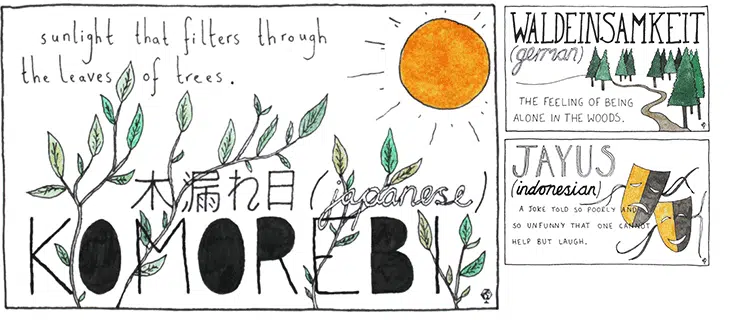 sunlight that filters through
the leaves of trees.
木漏れ日 (japanese)
KOMOREBI
WALDEINSAMKEIT
(german)
THE FEELING OF BEING
ALONE IN THE WOODS.
JAYUS
(indonesian)
A JOKE TOLD SO POORLY AND
SO UNFUNNY THAT ONE CANNOT
HELP BUT LAUGH.